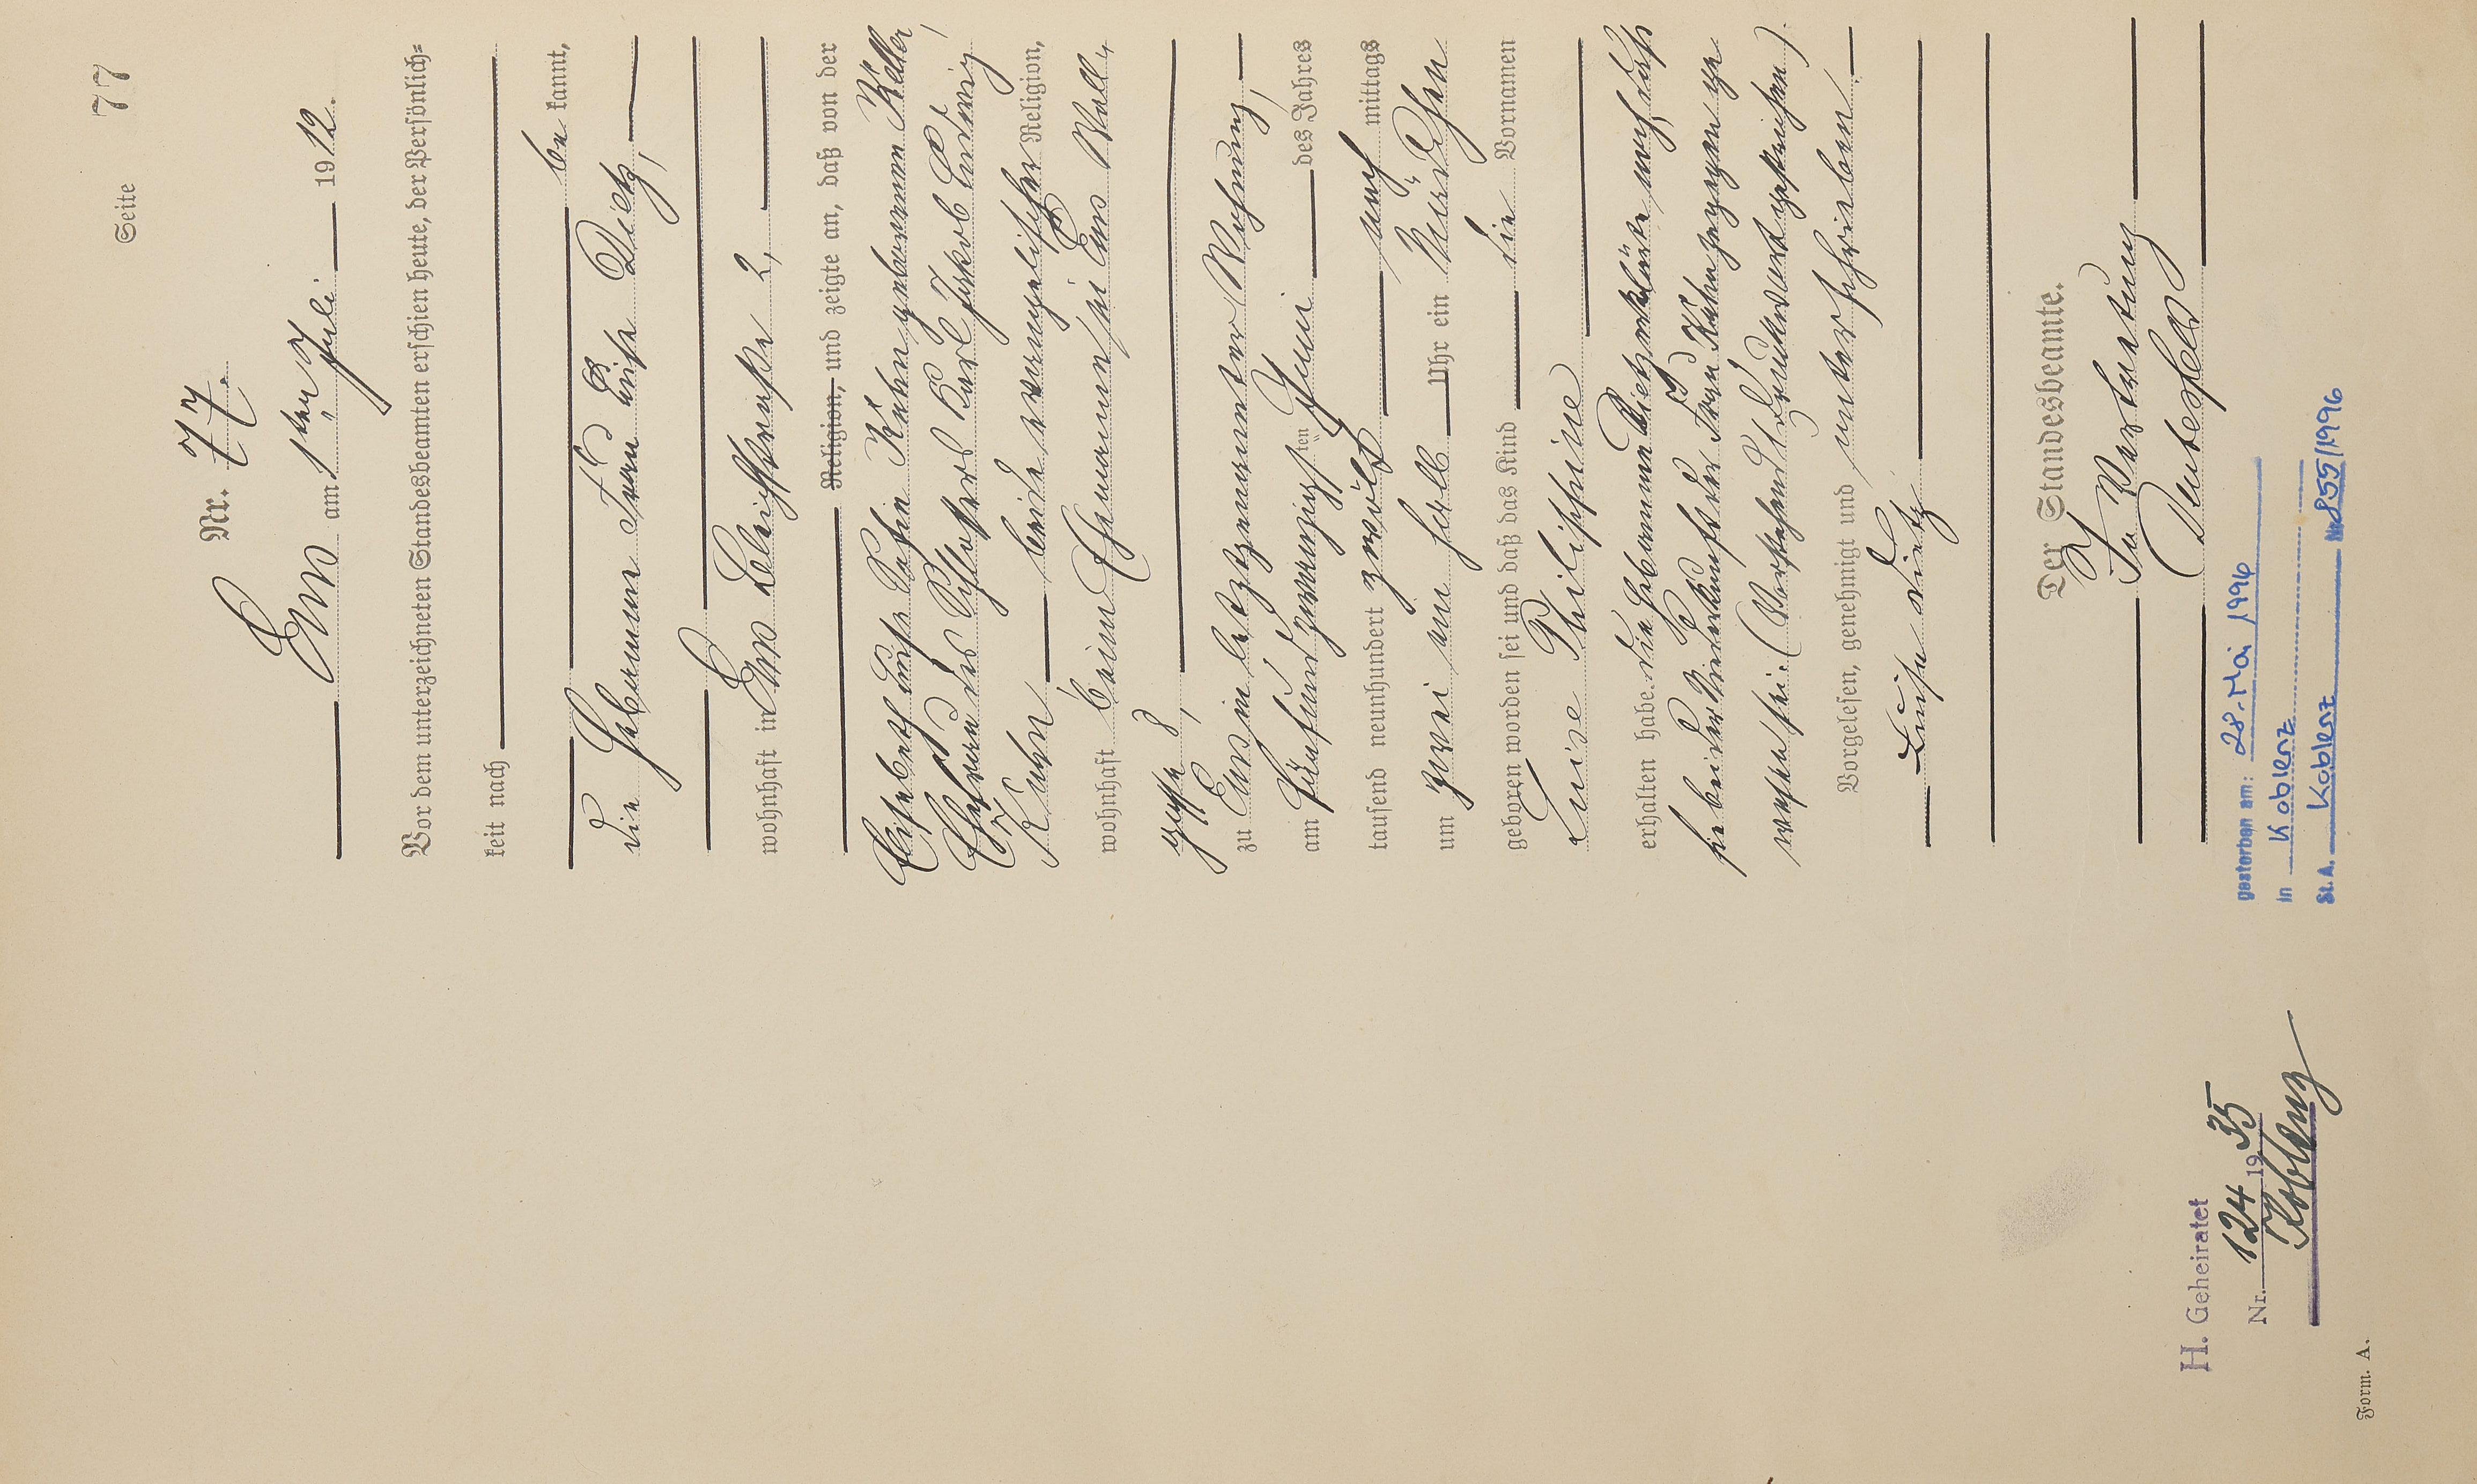 Seite 77
Nr. 77.
Ems am 1ten Juli 1912.
Vor dem unterzeichneten Standesbeamten erschien heute, der Persönlich=
keit nach
be kannt,
die Hebamme Frau Luise Dietz,
wohnhaft in Ems Bleichstraße 2,
Religion, und zeigte an, daß von der
Elisabeth Luise Sofie Kühn geborenen Keller,
Ehefrau des Schlossers Karl Jakob Ludwig
Kühn beide evangelischer Religion,
wohnhaft beim Ehemanne in Ems Wall-
gasse 8,
zu Ems in letztgenannter Wohnung,
am fünfundzwanzigsten Juni des Jahres
tausend neunhundert zwölf nach mittags
um zwei ein halb Uhr ein Mädchen
geboren worden sei und daß das Kind die Vornamen
Luise Philippine
erhalten habe. Die Hebamme Dietz erklärte noch, daß
sie bei der Niederkunft der Frau Kühn zugegen ge
wesen sei. (Vorstehend 1 Druckwort gestrichen).
Vorgelesen, genehmigt und unterschrieben.
Luise Dietz
Der Standesbeamte.
In Vertretung
gestorben am: 28. Mai 1996
in Koblenz
St. A. Koblenz Nr. 855/1996
H. Geheiratet
Nr. 124 1935
Koblenz
Form. A.